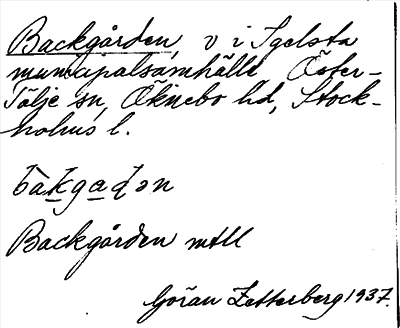 Backgården, v i Igelsta
municipalsamhälle, Öster-
Tälje sn, Öknebo hd, Stock-
holms l.
bàkgaɖən
Backgården mtll
Göran Zetterberg 1937.